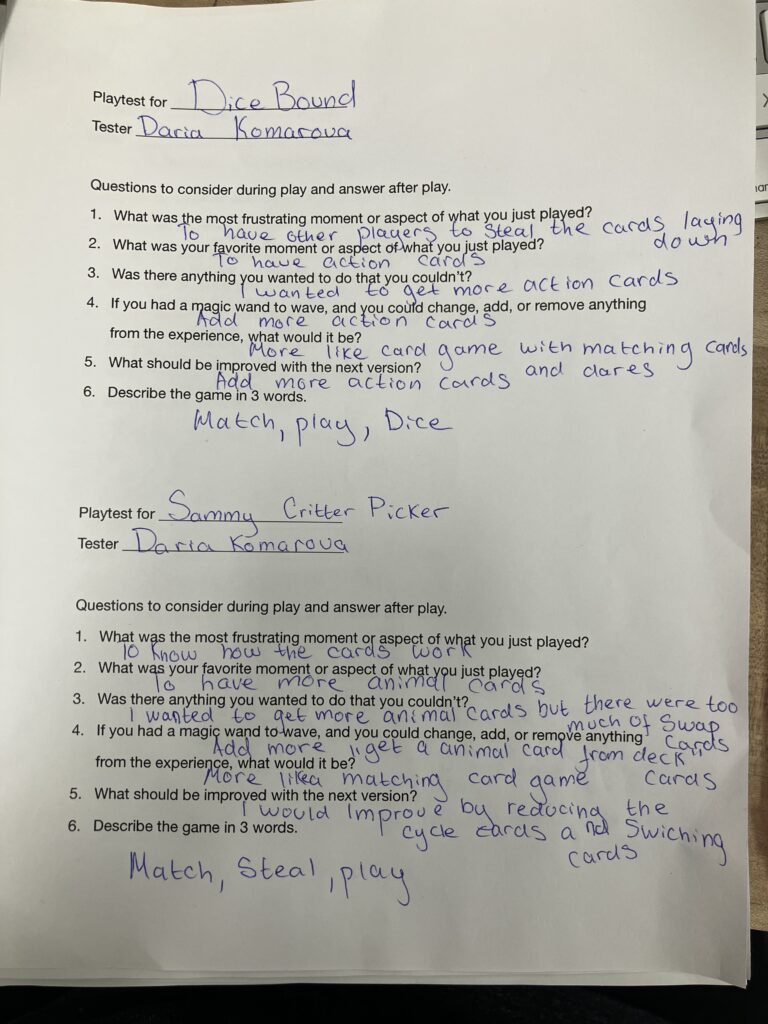 Playtest for Dice Bound
Tester Daria Komarova
Questions to consider during play and answer after play.
1. What was the most frustrating moment or aspect of what you just played?
To have other players to steal the cards laying down
2. What was your favorite moment or aspect of what you just played?
To have action cards
3. Was there anything you wanted to do that you couldn't?
I wanted to get more action cards
4. If you had a magic wand to wave, and you could change, add, or remove anything
Add more action cards
from the experience, what would it be?
More like card game with matching cards and dares
5. What should be improved with the next version?
Add more action cards
6. Describe the game in 3 words.
Match, play, Dice
Playtest for Sammy Critter Picker
Tester Daria Komarova
Questions to consider during play and answer after play.
1. What was the most frustrating moment or aspect of what you just played?
To know how the cards work
2. What was your favorite moment or aspect of what you just played?
To have more animal cards
3. Was there anything you wanted to do that you couldn't?
I wanted to get more animal cards but there were too much of swap cards
4. If you had a magic wand to wave, and you could change, add, or remove anything
Add more "get a animal card from deck" cards
from the experience, what would it be?
More like a matching card game
5. What should be improved with the next version?
I would Improve by reducing the cycle cards and Swiching cards
6. Describe the game in 3 words.
Match, Steal, play